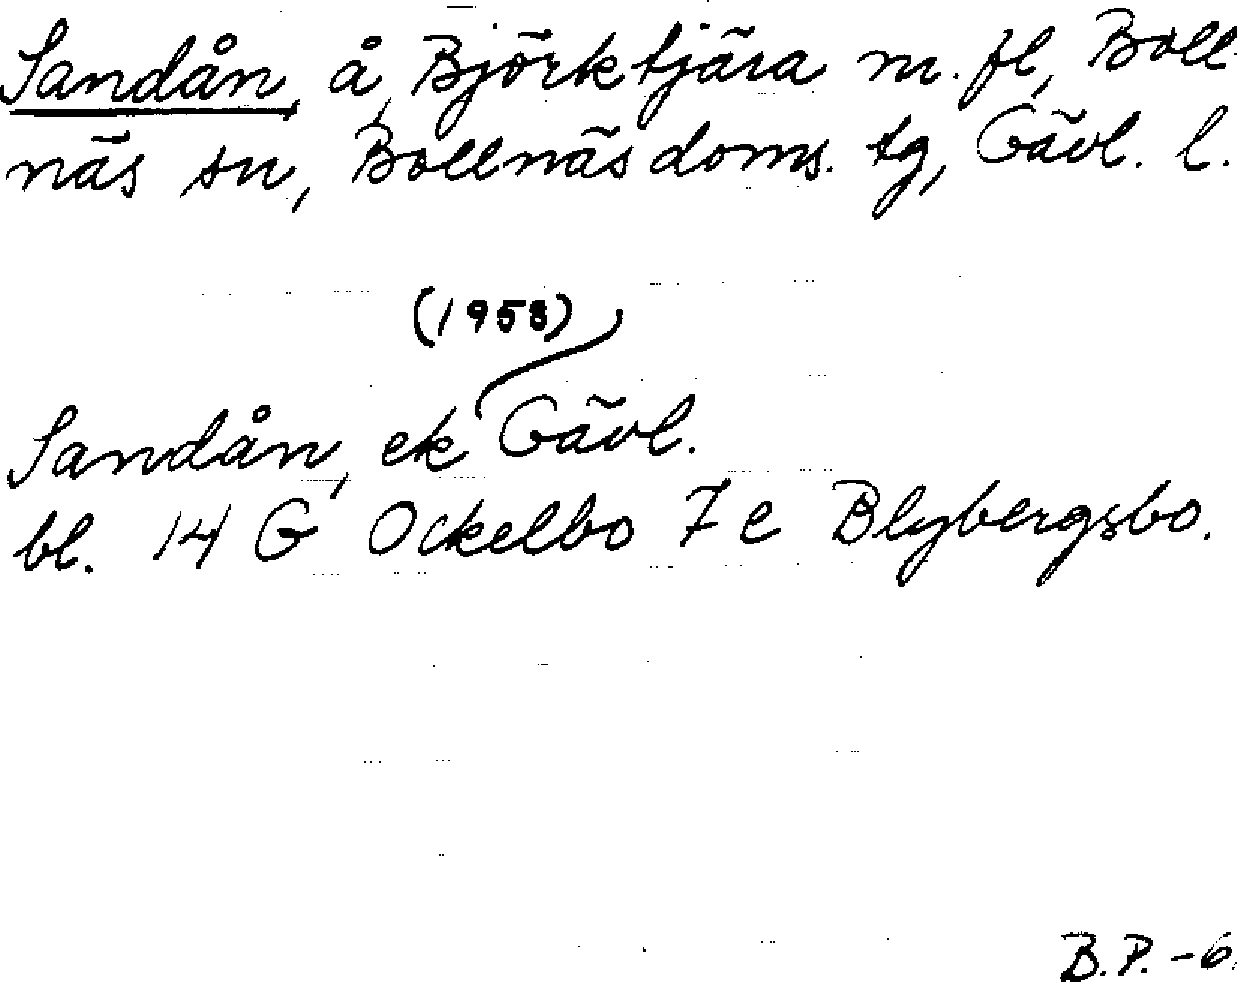 Sandån, å, Björktjära m. fl, Boll-
näs sn, Bollnäs doms. tg, Gävl. l.
(1958)
Sandån, ek Gävl.
bl. 14 G Ockelbo 7 e Blybergsbo.
B.P. -6